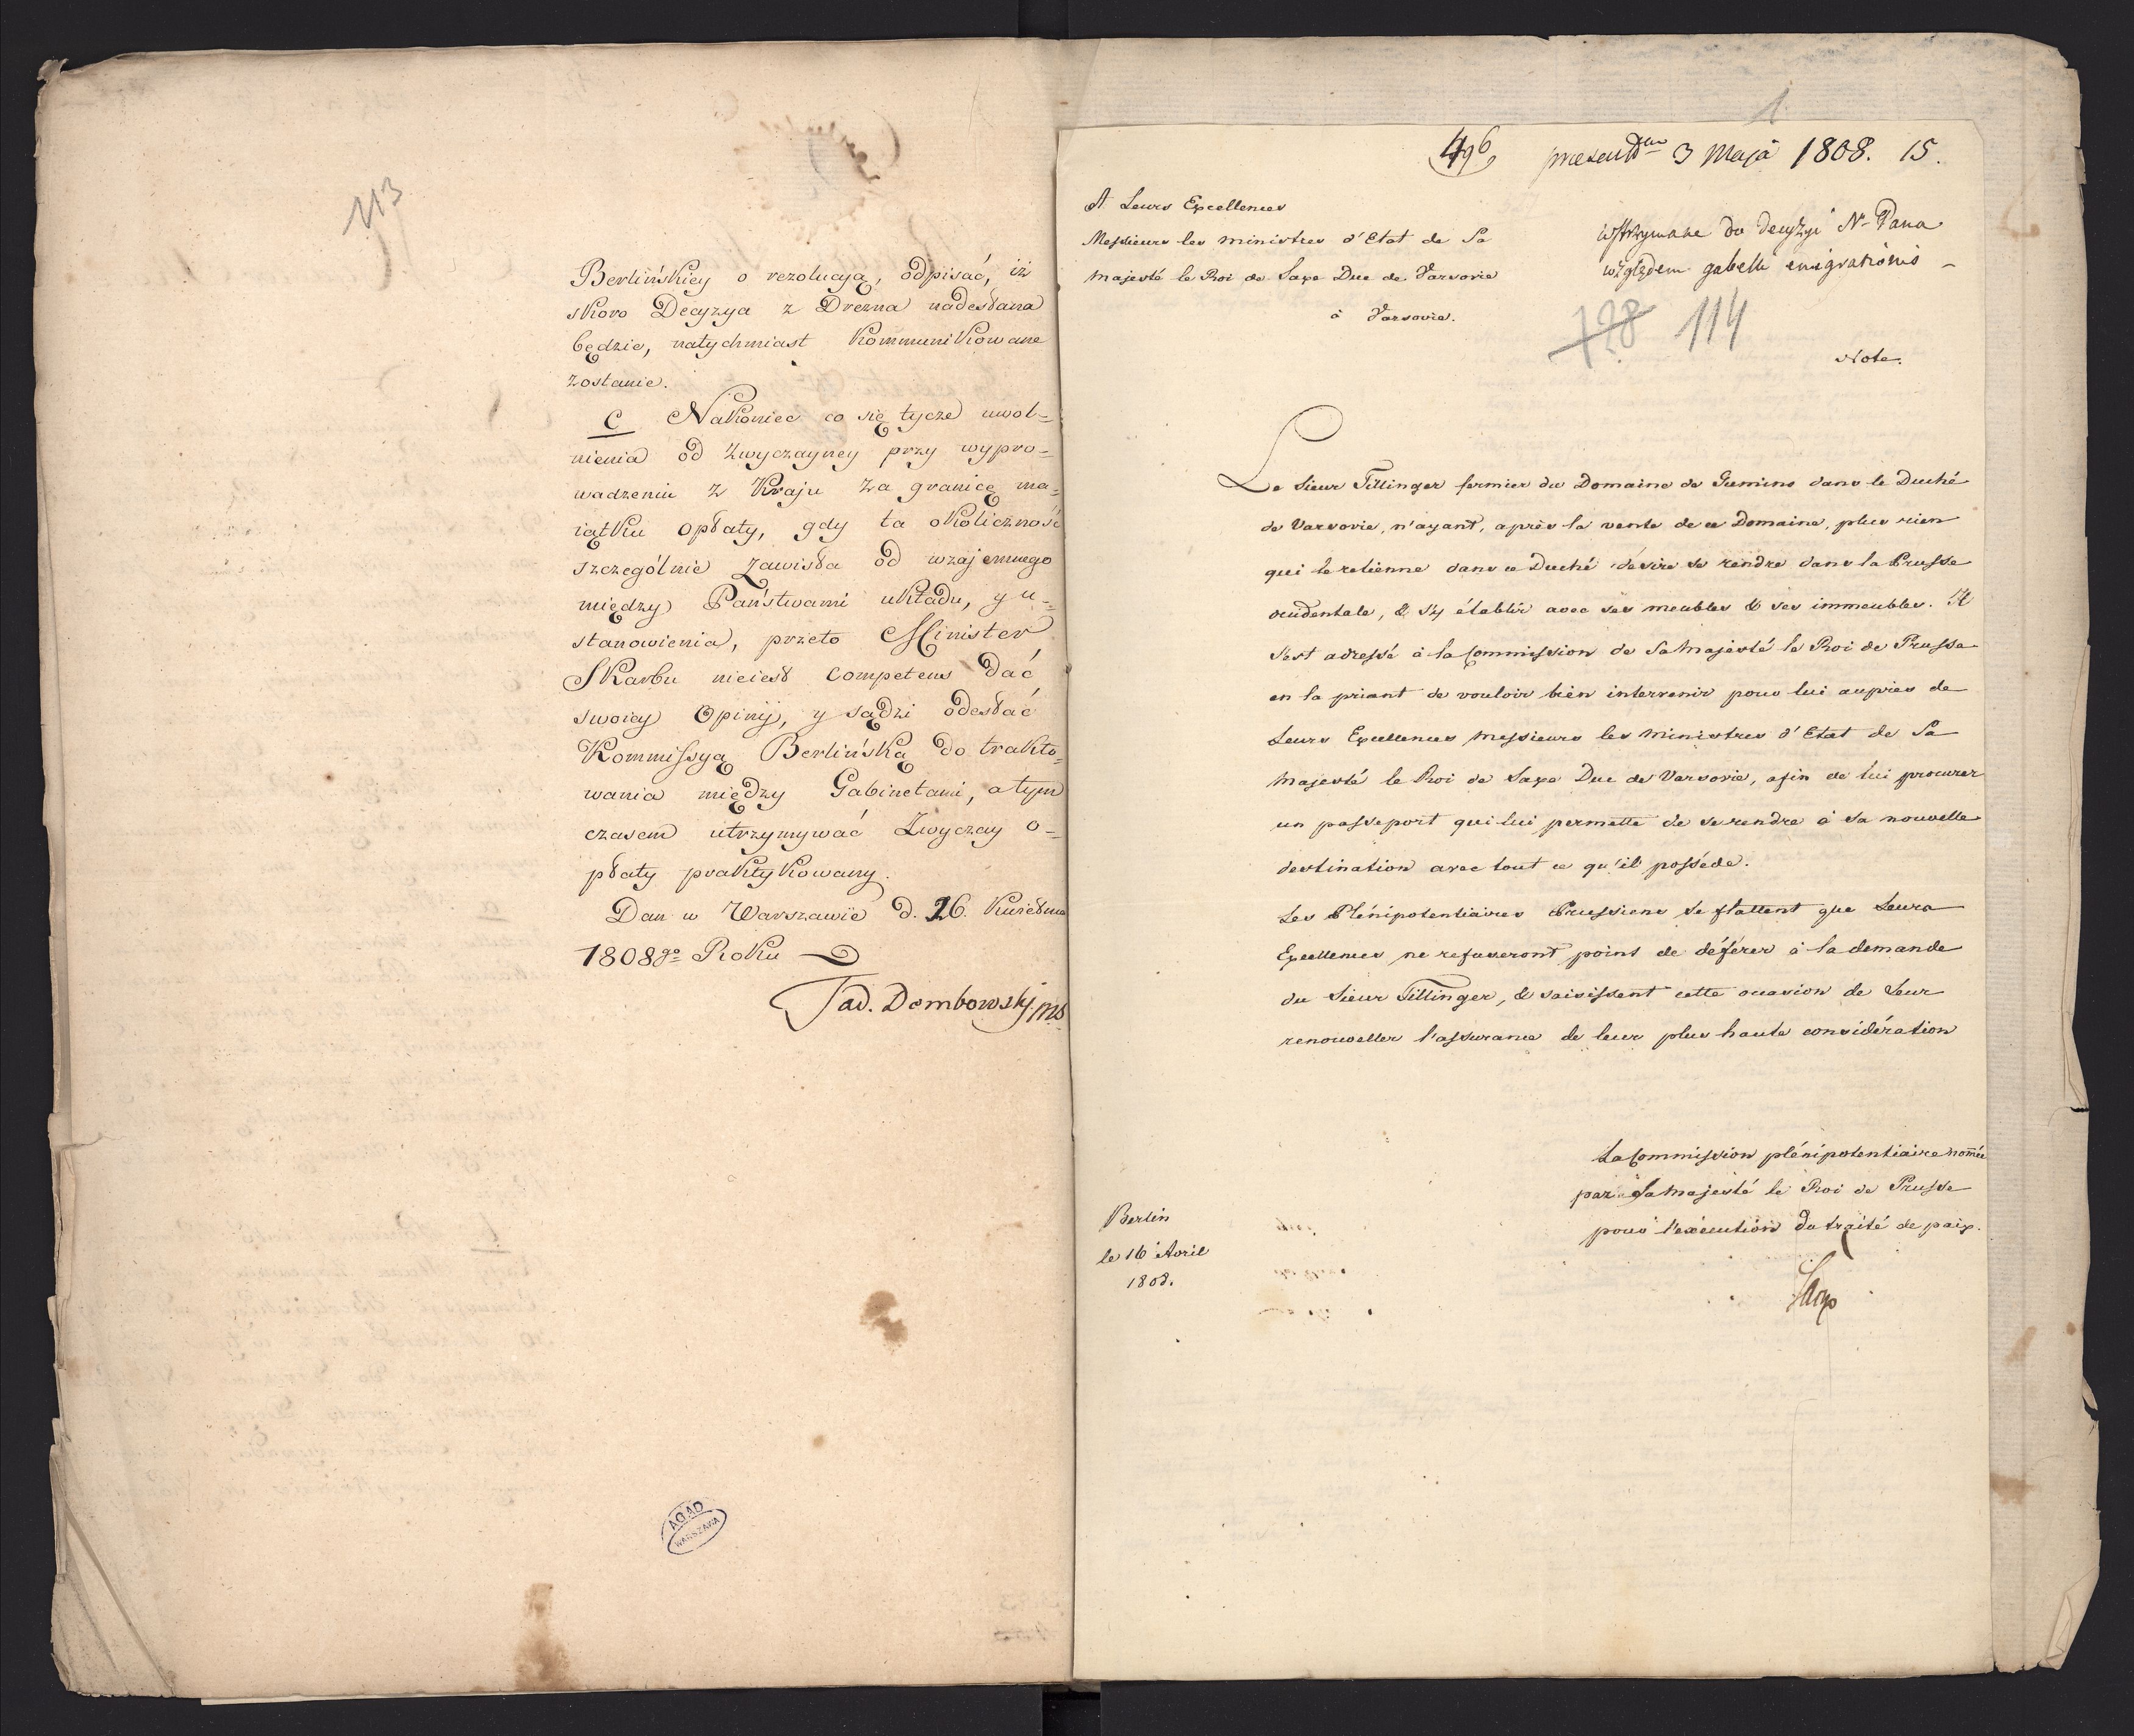 113
Berlińskiey o rezolucyą, odpisać, iż
skoro Decyzya z Drezna nadesłana
będzie, natychmiast Kommunikowane
zostanie.
C Nakoniec co się tycze uwol=
nienia od Zwyczayney przy wypro=
wadzeniu z Kraju za granicę ma=
iątku opłaty, gdy ta okoliczność
szczególnie zawisła od wzajemnego
między Państwami układu, y u=
stanowienia, przeto Minister
Skarbu nieiest competens dać
swoiey Opinij, y sądzi odesłać
Kommissyą Berlińską do trakto=
wania między Gabinetami, a tym
czasem utrzymywać Zwyczay o=
płaty praktykowany.
Dan w Warszawie d. 26. Kwietnia
1808go Roku
Tad. Dembowskj. ms
AGAD
WARSZAWA
1
496 praesentatum 3 Maja 1808. 15.
A Leurs Excellences
Messieurs les ministres d'Etat de Sa
Majesté le Roi de Saxe Duc de Varsovie
à Varsovie.
Wstrzymane do decyzyi N. Pana
względem gabelli emigrationis
128 114
Note.
Le Sieur Tillinger fermier du Domaine de Gumino dans le Duché
de Varsovie, n'ayant, après la vente de ce Domaine, plus rien
qui le retienne dans ce Duché désire se rendre dans la Prusse
occidentale, & s'y établir avec ses meubles & ses immeubles. Il
s'est adressé à la Commission de Sa Majesté le Roi de Prusse
en la priant de vouloir bien intervenir pour lui auprès de
Leurs Excellences Messieurs les Ministres d'Etat de Sa
Majesté le Roi de Saxe Duc de Varsovie, afin de lui procurer
un passeport qui lui permette de se rendre à sa nouvelle
destination avec tout ce qu'il possède.
Les Plénipotentiaires Prussiens se flattent que Leurs
Excellences ne refuseront point de déférer à la demande
du Sieur Tillinger, & saisissent cette occasion de Leur
renouveller l'assurance de leur plus haute considération
La Commission plénipotentiaire nom̄ée
par Sa Majesté le Roi de Prusse
pour l'exécution du traité de paix.
Berlin
le 16 Avril
1808.